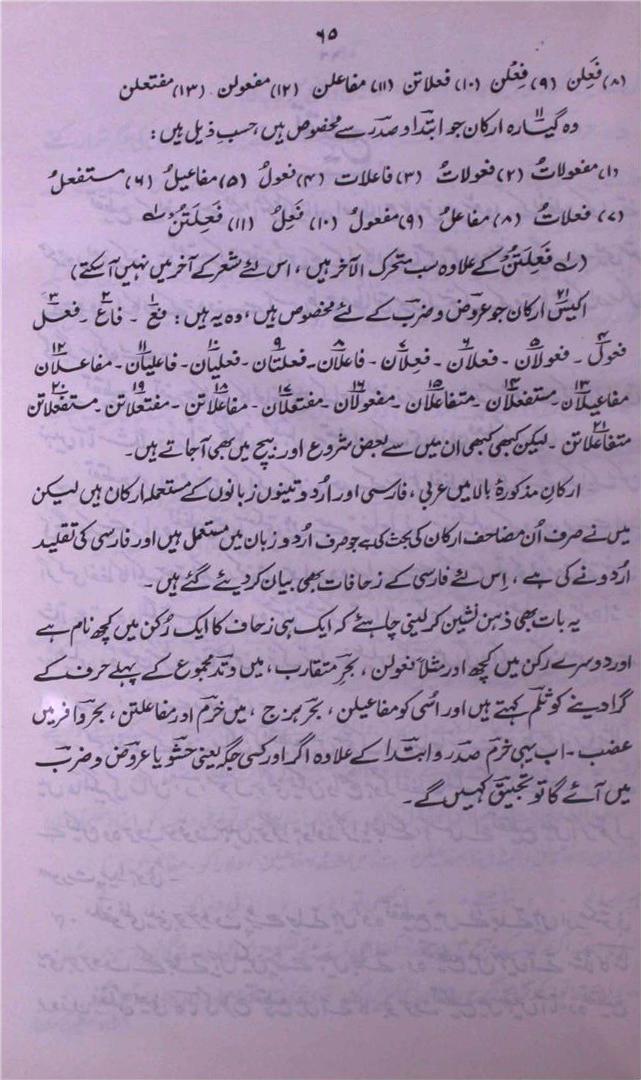 ۶۵
(۸) فَعِلن (۹) فِعْلن (۱۰) فعلاتن (۱۱) مفاعلن (۱۲) مفعولن (۱۳) مفتعلن
وہ گیارہ ۱۱ ارکان جو ابتدا و صدر سے مخصوص ہیں، حسبِ ذیل ہیں:
(۱) مفعولاتُ (۲) فعولاتُ (۳) فاعلات (۴) فعولُ (۵) مفاعیلُ (۶) مستفعلُ
(۷) فعلاتُ (۸) مفاعلُ (۹) مفعولُ (۱۰) فَعِلُ (۱۱) فَعِلَتَنُ ؎۱
(؎۱ فَعِلَتَنُ کے علاوہ سب متحرک الآخر ہیں، اس لئے شعر کے آخر میں نہیں آ سکتے)
اکیس ۲۱ ارکان جو عروض و ضرب کے لئے مخصوص ہیں، وہ یہ ہیں: فع ۱ ۔ فاع ۲ ۔ فعل ۳
فعول ۴ ۔ فعولان ۵ ۔ فعلان ۶ ۔ فعِلان ۷ ۔ فاعلان ۸ ۔ فعلتان ۹ ۔ فعلیان ۱۰ ۔ فاعلیان ۱۱ ۔ مفاعلان ۱۲
مفاعیلان ۱۳ ۔ مستفعلان ۱۴ ۔ متفاعلان ۱۵ ۔ مفعولان ۱۶ ۔ مفتعلان ۱۷ ۔ مفاعلاتن ۱۸ ۔ مفتعلاتن ۱۹ ۔ مستفعلاتن ۲۰
متفاعلاتن ۲۱ ۔ لیکن کبھی کبھی ان میں سے بعض شروع اور بیچ میں بھی آجاتے ہیں۔
ارکانِ مذکورۂ بالا میں عربی، فارسی اور اردو تینوں زبانوں کے مستعملہ ارکان ہیں لیکن
میں نے صرف اُن مضاحف ارکان کی بحث کی ہے جو صرف اُردو زبان میں مستعمل ہیں اور فارسی کی تقلید
اُردو نے کی ہے، اِس لئے فارسی کے زحافات بھی بیان کر دیئے گئے ہیں۔
یہ بات بھی ذہن نشین کر لینی چاہئے کہ ایک ہی زحاف کا ایک رُکن میں کچھ نام ہے
اور دوسرے رکن میں کچھ اور مثلاً فعولن، بحرِ متقارب، میں وتد مجموع کے پہلے حرف کے
گرا دینے کو ثلم کہتے ہیں اور اُسی کو مفاعیلن، بحر ہزج، میں خرم اور مفاعلتن، بحر وافر میں
عضب۔ اب یہی خرم صدر و ابتدا کے علاوہ اگر اور کسی جگہ یعنی حشو یا عروض و ضرب
میں آئے گا تو تجنیق کہیں گے۔